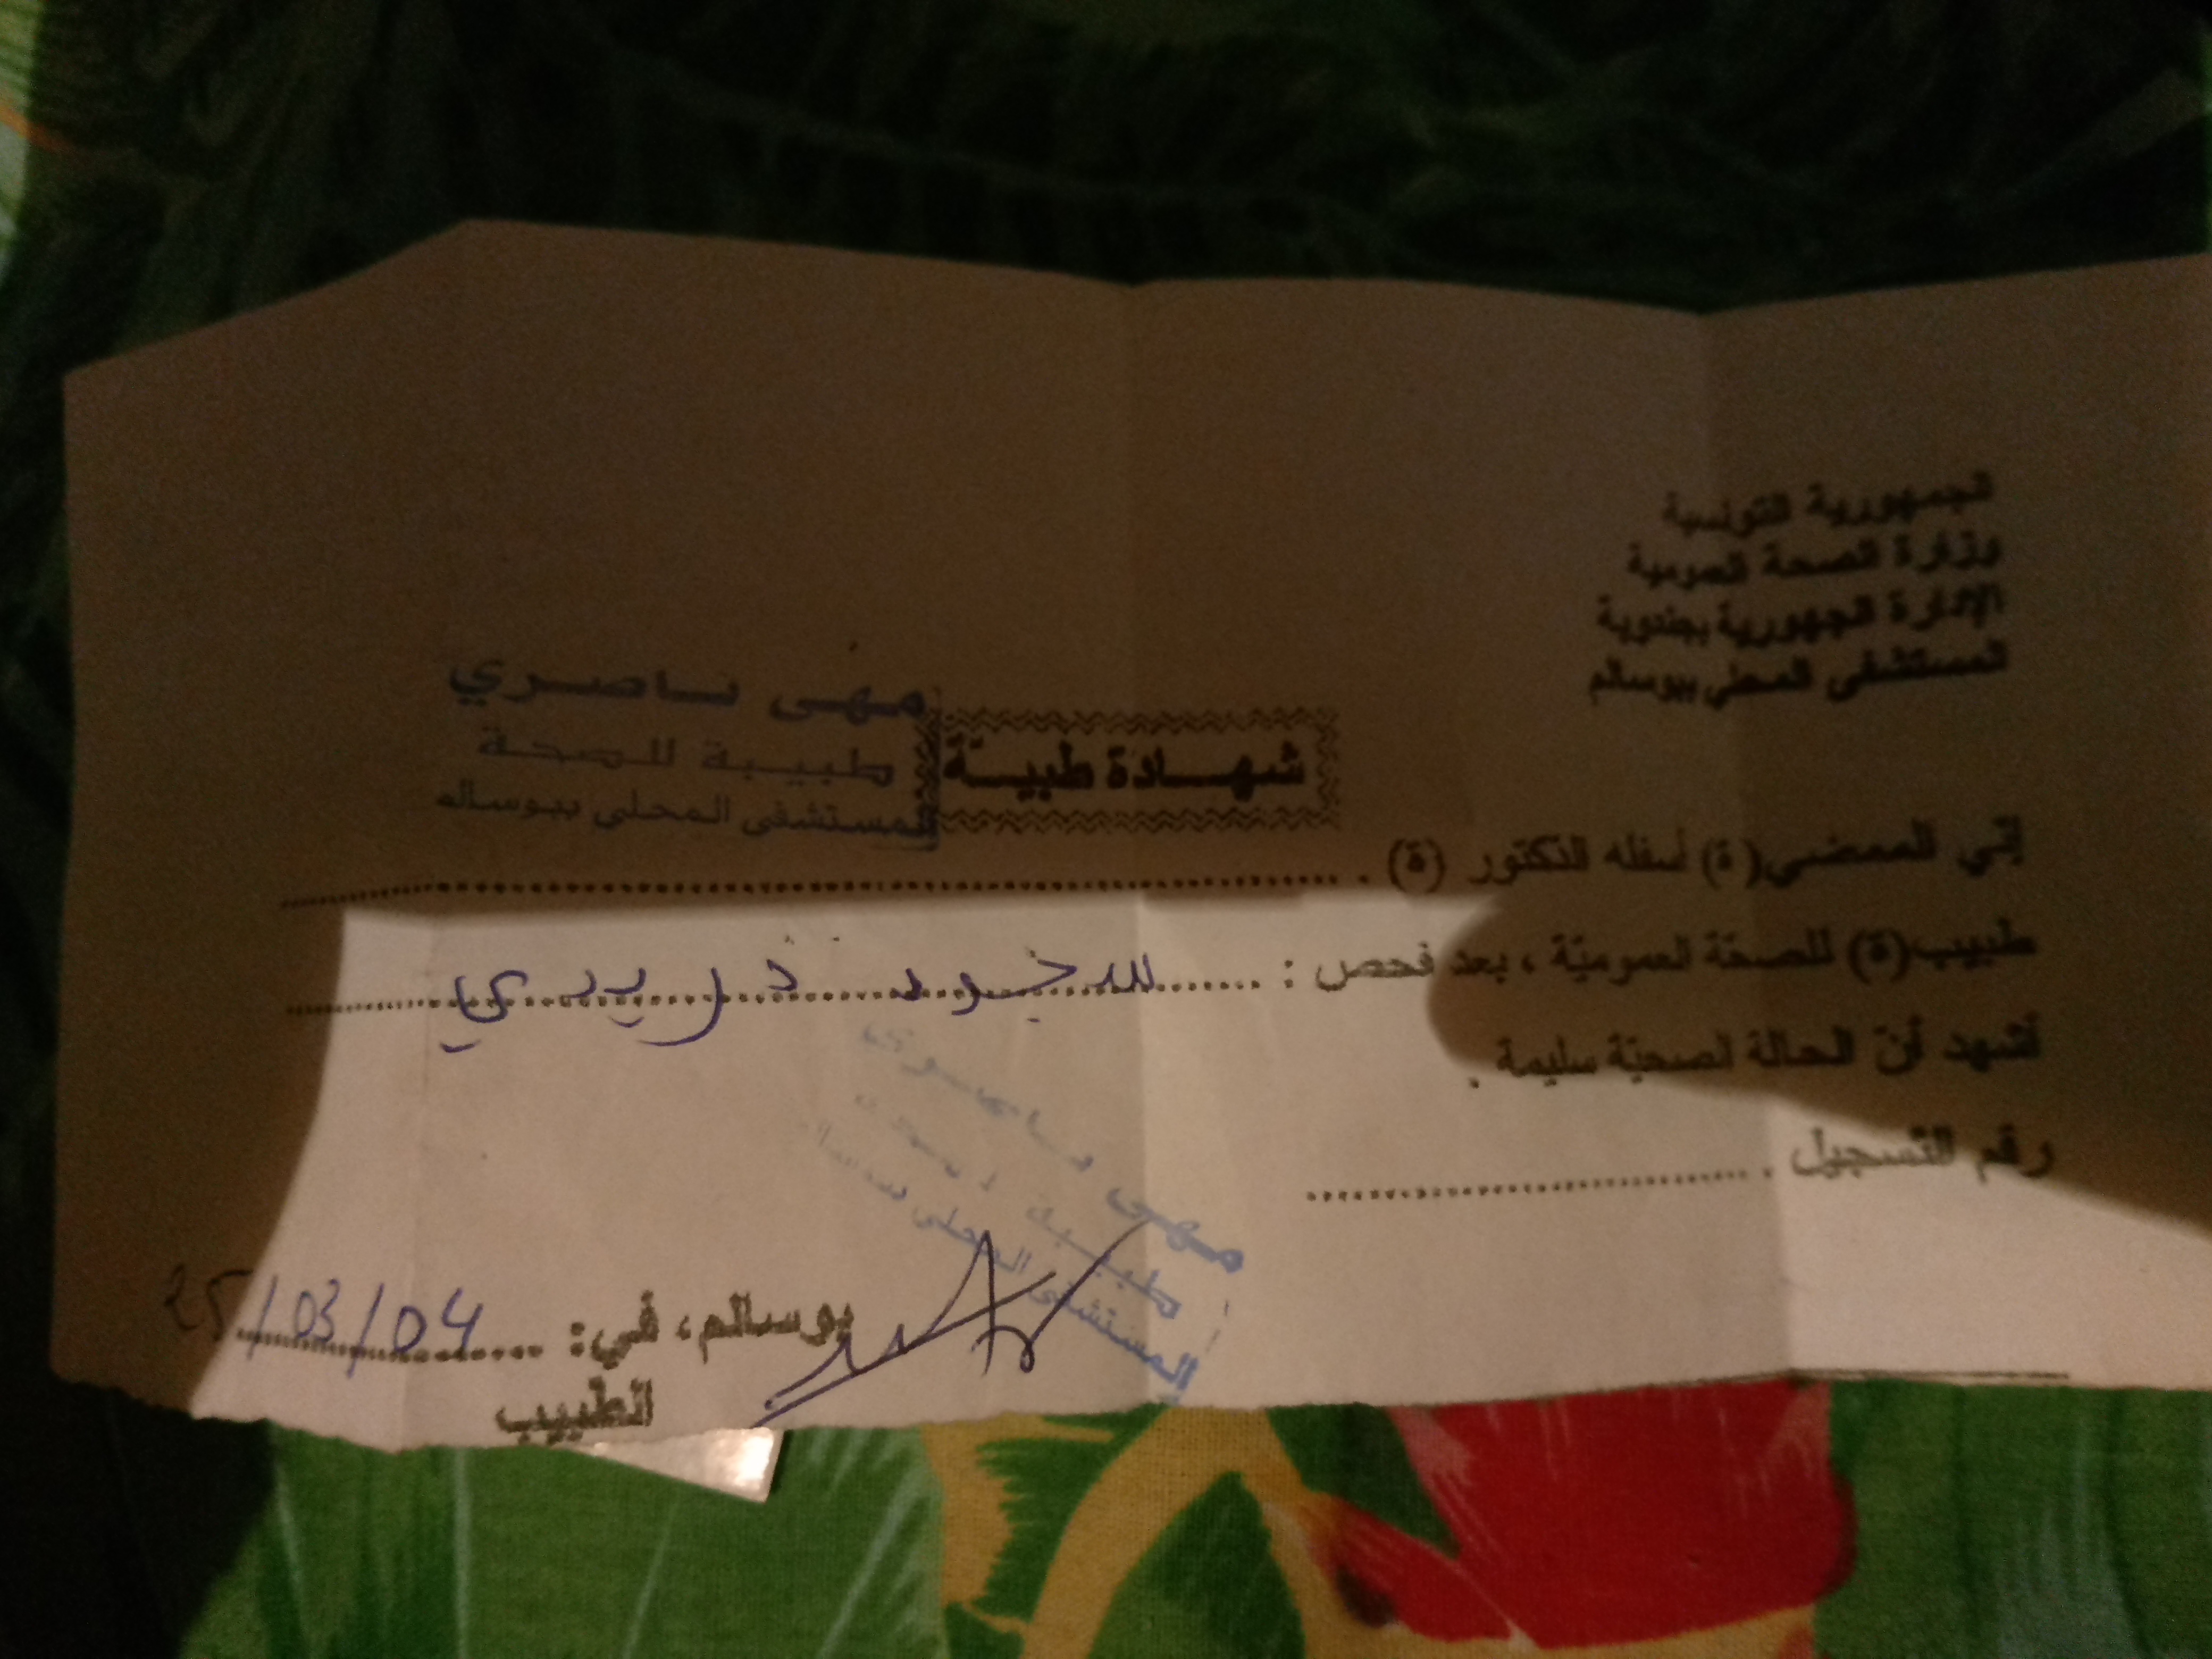 الجمهورية التونسية
وزارة الصحة العمومية
الإدارة الجهورية بجندوبة
المستشفى المحلي ببوسالم
مهى ناصري
طبيبة للصحة
المستشفى المحلي ببوسالم
شهــادة طبيــّة
إنّي الممضي(ة) أسفله الدكتور (ة) .
طبيب(ة) للصحّة العموميّة ، بعد فحص : سجود دريدي
أشهد أنّ الحالة الصحيّة سليمة .
رقم التسجيل .
مهى ناصري
طبيبة
المستشفى المحلي
بوسالم، في: 25/03/04
الطّبيب